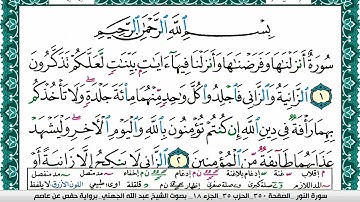 بِسْمِ ٱللَّهِ ٱلرَّحْمَٰنِ ٱلرَّحِيمِ
سُورَةٌ أَنزَلْنَٰهَا وَفَرَضْنَٰهَا وَأَنزَلْنَا فِيهَآ ءَايَٰتٍۭ بَيِّنَٰتٍ لَّعَلَّكُمْ تَذَكَّرُونَ
١ ٱلزَّانِيَةُ وَٱلزَّانِى فَٱجْلِدُوا۟ كُلَّ وَٰحِدٍ مِّنْهُمَا مِا۟ئَةَ جَلْدَةٍ وَلَا تَأْخُذْكُم
بِهِمَا رَأْفَةٌ فِى دِينِ ٱللَّهِ إِن كُنتُمْ تُؤْمِنُونَ بِٱللَّهِ وَٱلْيَوْمِ ٱلْءَاخِرِ وَلْيَشْهَدْ
عَذَابَهُمَا طَآئِفَةٌ مِّنَ ٱلْمُؤْمِنِينَ ٢ ٱلزَّانِى لَا يَنكِحُ إِلَّا زَانِيَةً
سورة النور . الصفحة ٣٥٠ . الحزب ٣٥ . الجزء ١٨ . بصوت الشيخ عبد الله الجهني . برواية حفص عن عاصم